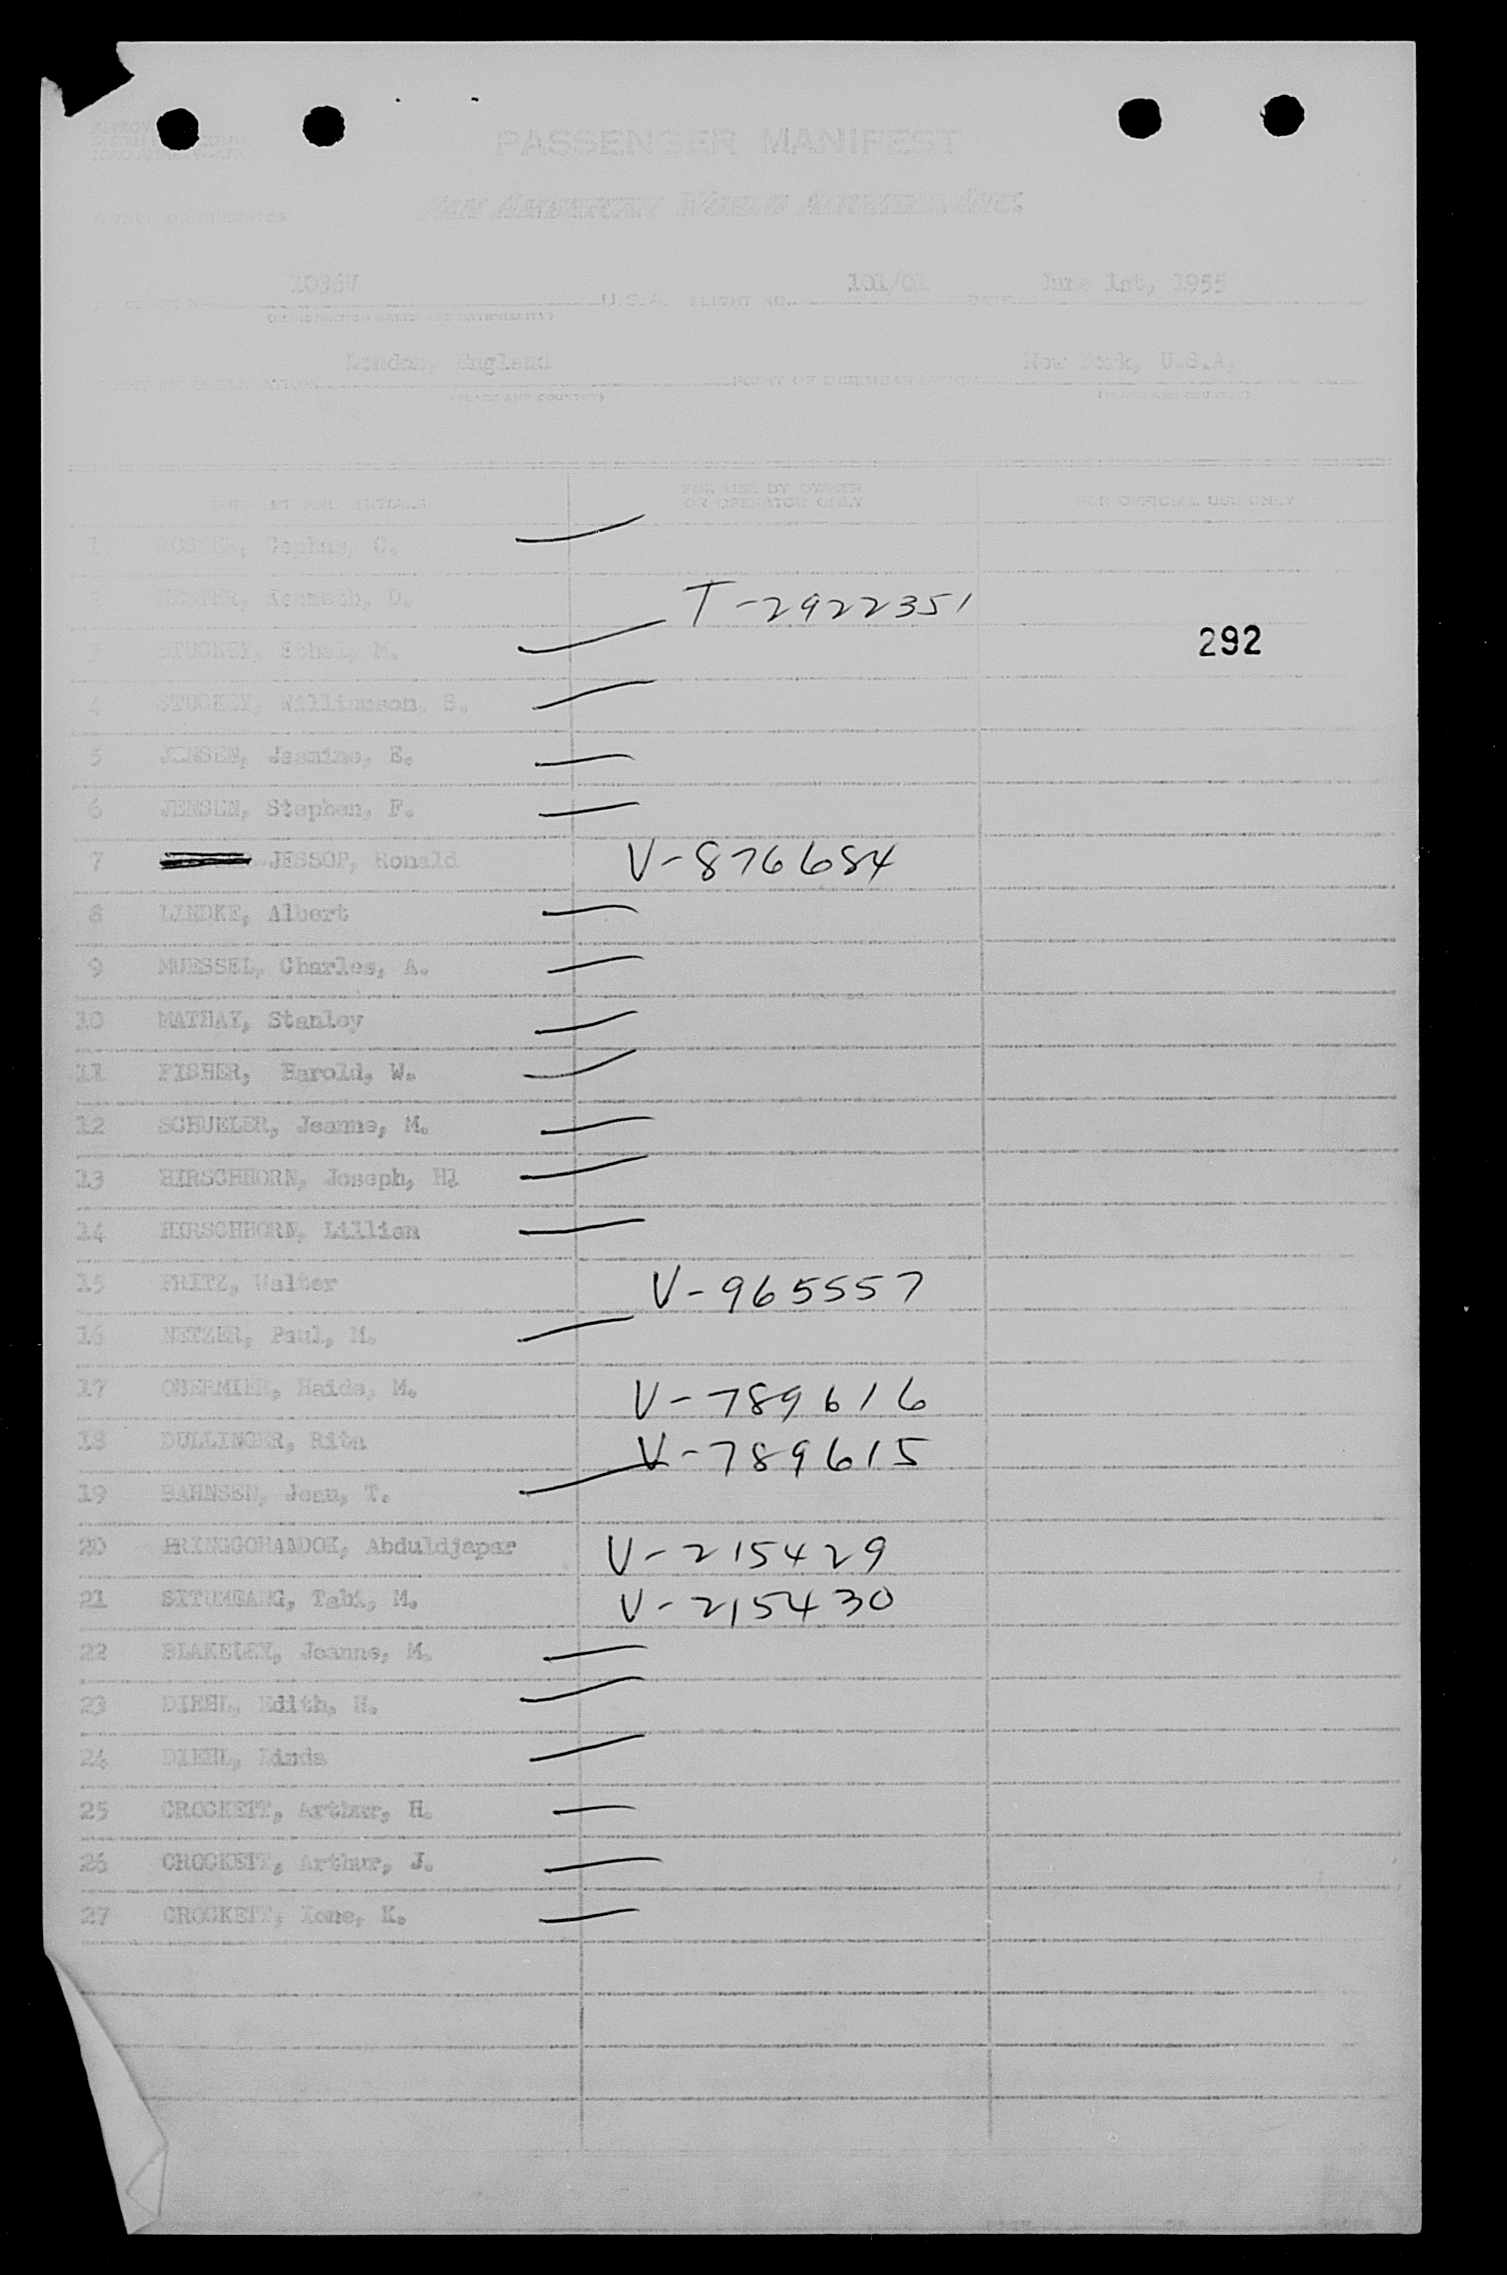 PASSENGER MANIFEST
PAN AMERICAN WORLD AIRWAYS INC.
1036V U.S.A. FLIGHT NO. 101/01 DATE June 1st, 1955
London, England New York, U.S.A.
(PLACE AND COUNTRY) (PLACE AND COUNTRY)
FOR USE BY OWNER OR OPERATOR ONLY FOR OFFICIAL USE ONLY
1 Cephus, C.
Kenneth, O. T-2922351
3 STUCKEY, Ethel, M. 292
4 STUCKEY, Williamson, S.
5 JENSEN, Jeanine, E.
6 JENSEN, Stephen, F.
7 JESSOP, Ronald V-876684
8 LINDKE, Albert
9 MUESSEL, Charles, A.
10 MATHAY, Stanley
11 FISHER, Harold, W.
12 SCHUELER, Jeanne, M.
13 HIRSCHHORN, Joseph, H.
14 HIRSCHHORN, Lillian
15 FRITZ, Walter V-965557
16 NETZER, Paul, M.
17 OBERMIER, Haide, M. V-789616
18 DULLINGER, Rita V-789615
19 BAHNSEN, Jean, T.
20 Abduldjapar V-215429
21 SITUMEANG, Tabi, M. V-215430
22 BLAKELEY, Joanne, M.
23 DIEHL, Edith, H.
24 DIEHL, Linda
25 CROCKETT, Arthur, H.
26 CROCKETT, Arthur, J.
27 CROCKETT, K.